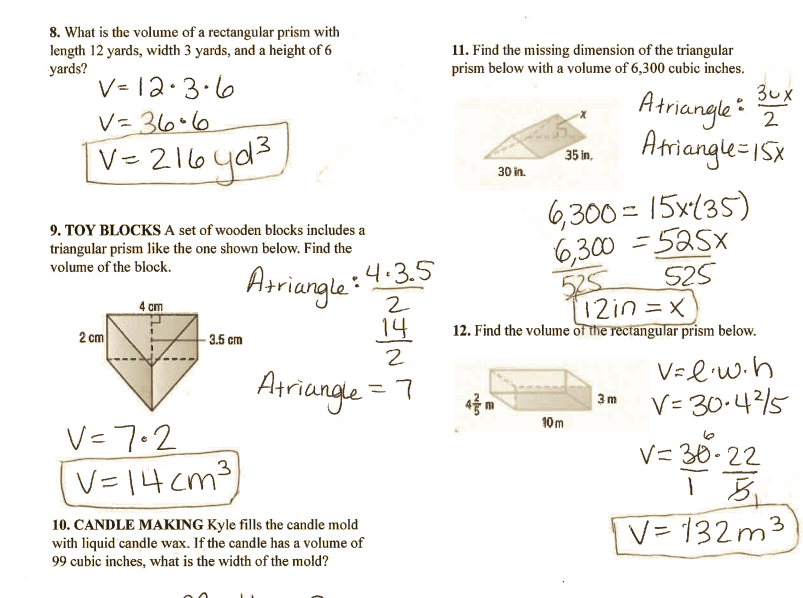 8. What is the volume of a rectangular prism with
length 12 yards, width 3 yards, and a height of 6
yards?
V= 12·3·6
V= 36·6
V= 216 yd³
9. TOY BLOCKS A set of wooden blocks includes a
triangular prism like the one shown below. Find the
volume of the block.
Atriangle: 4·3.5
2
14
2
Atriangle = 7
4 cm
2 cm
3.5 cm
V= 7·2
V= 14 cm³
10. CANDLE MAKING Kyle fills the candle mold
with liquid candle wax. If the candle has a volume of
99 cubic inches, what is the width of the mold?
11. Find the missing dimension of the triangular
prism below with a volume of 6,300 cubic inches.
Atriangle: 30x
2
Atriangle=15x
x
35 in.
30 in.
6,300 = 15x(35)
6,300 = 525x
525 525
12in = x
12. Find the volume of the rectangular prism below.
4 2/5 m
3 m
10 m
V=l·w·h
V= 30·4 2/5
6
V= 30·22
1 5 1
V= 132 m³